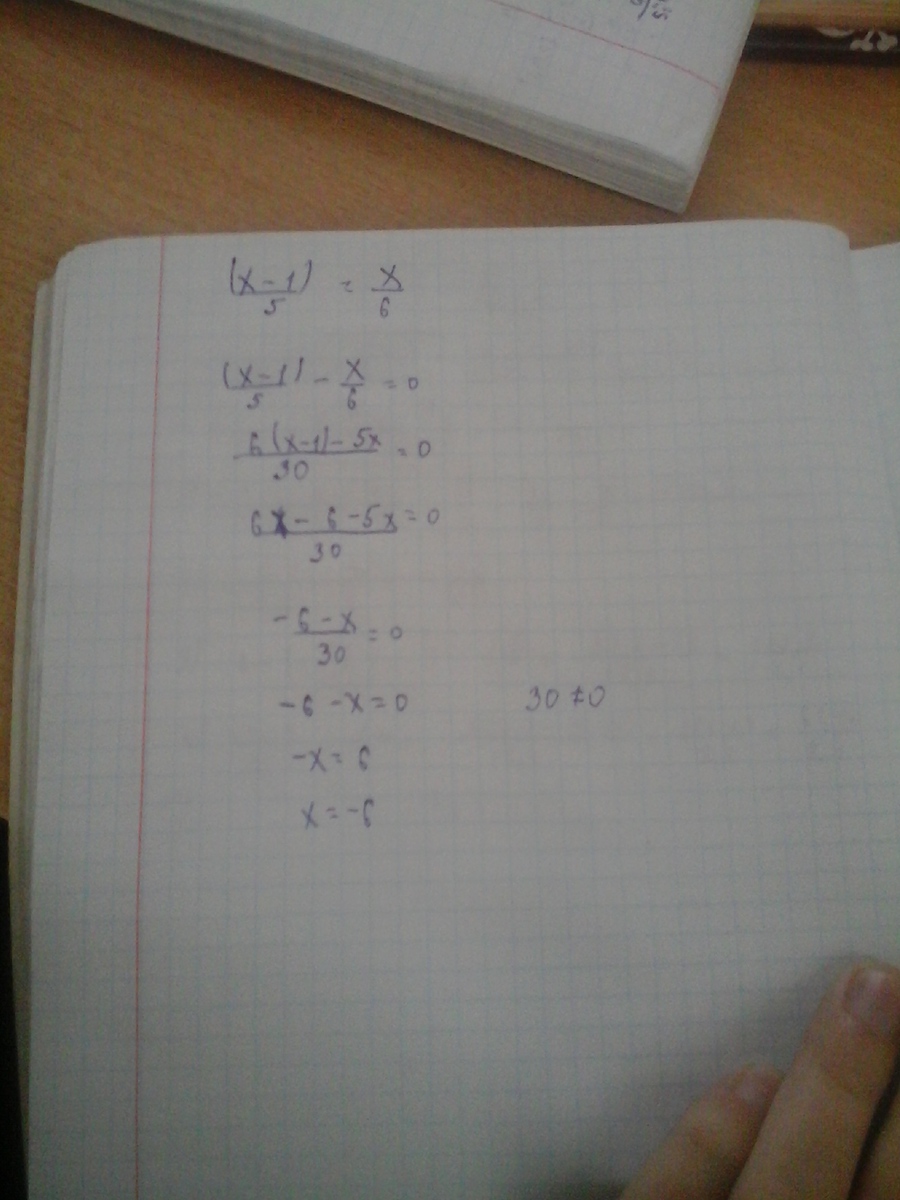 (x-1)/5 = x/6
(x-1)/5 - x/6 = 0
(6(x-1)-5x)/30 = 0
(6x-6-5x)/30 = 0
(-6-x)/30 = 0
-6-x=0 30≠0
-x=6
x=-6